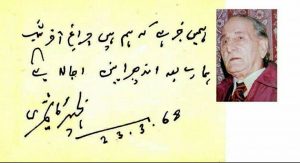 ہمیں خبر ہے کہ ہم ہیں چراغِ آخرِ شب
ہمارے بعد اندھیرا نہیں اجالا ہے
ظہیر کاشمیری
23.3.68